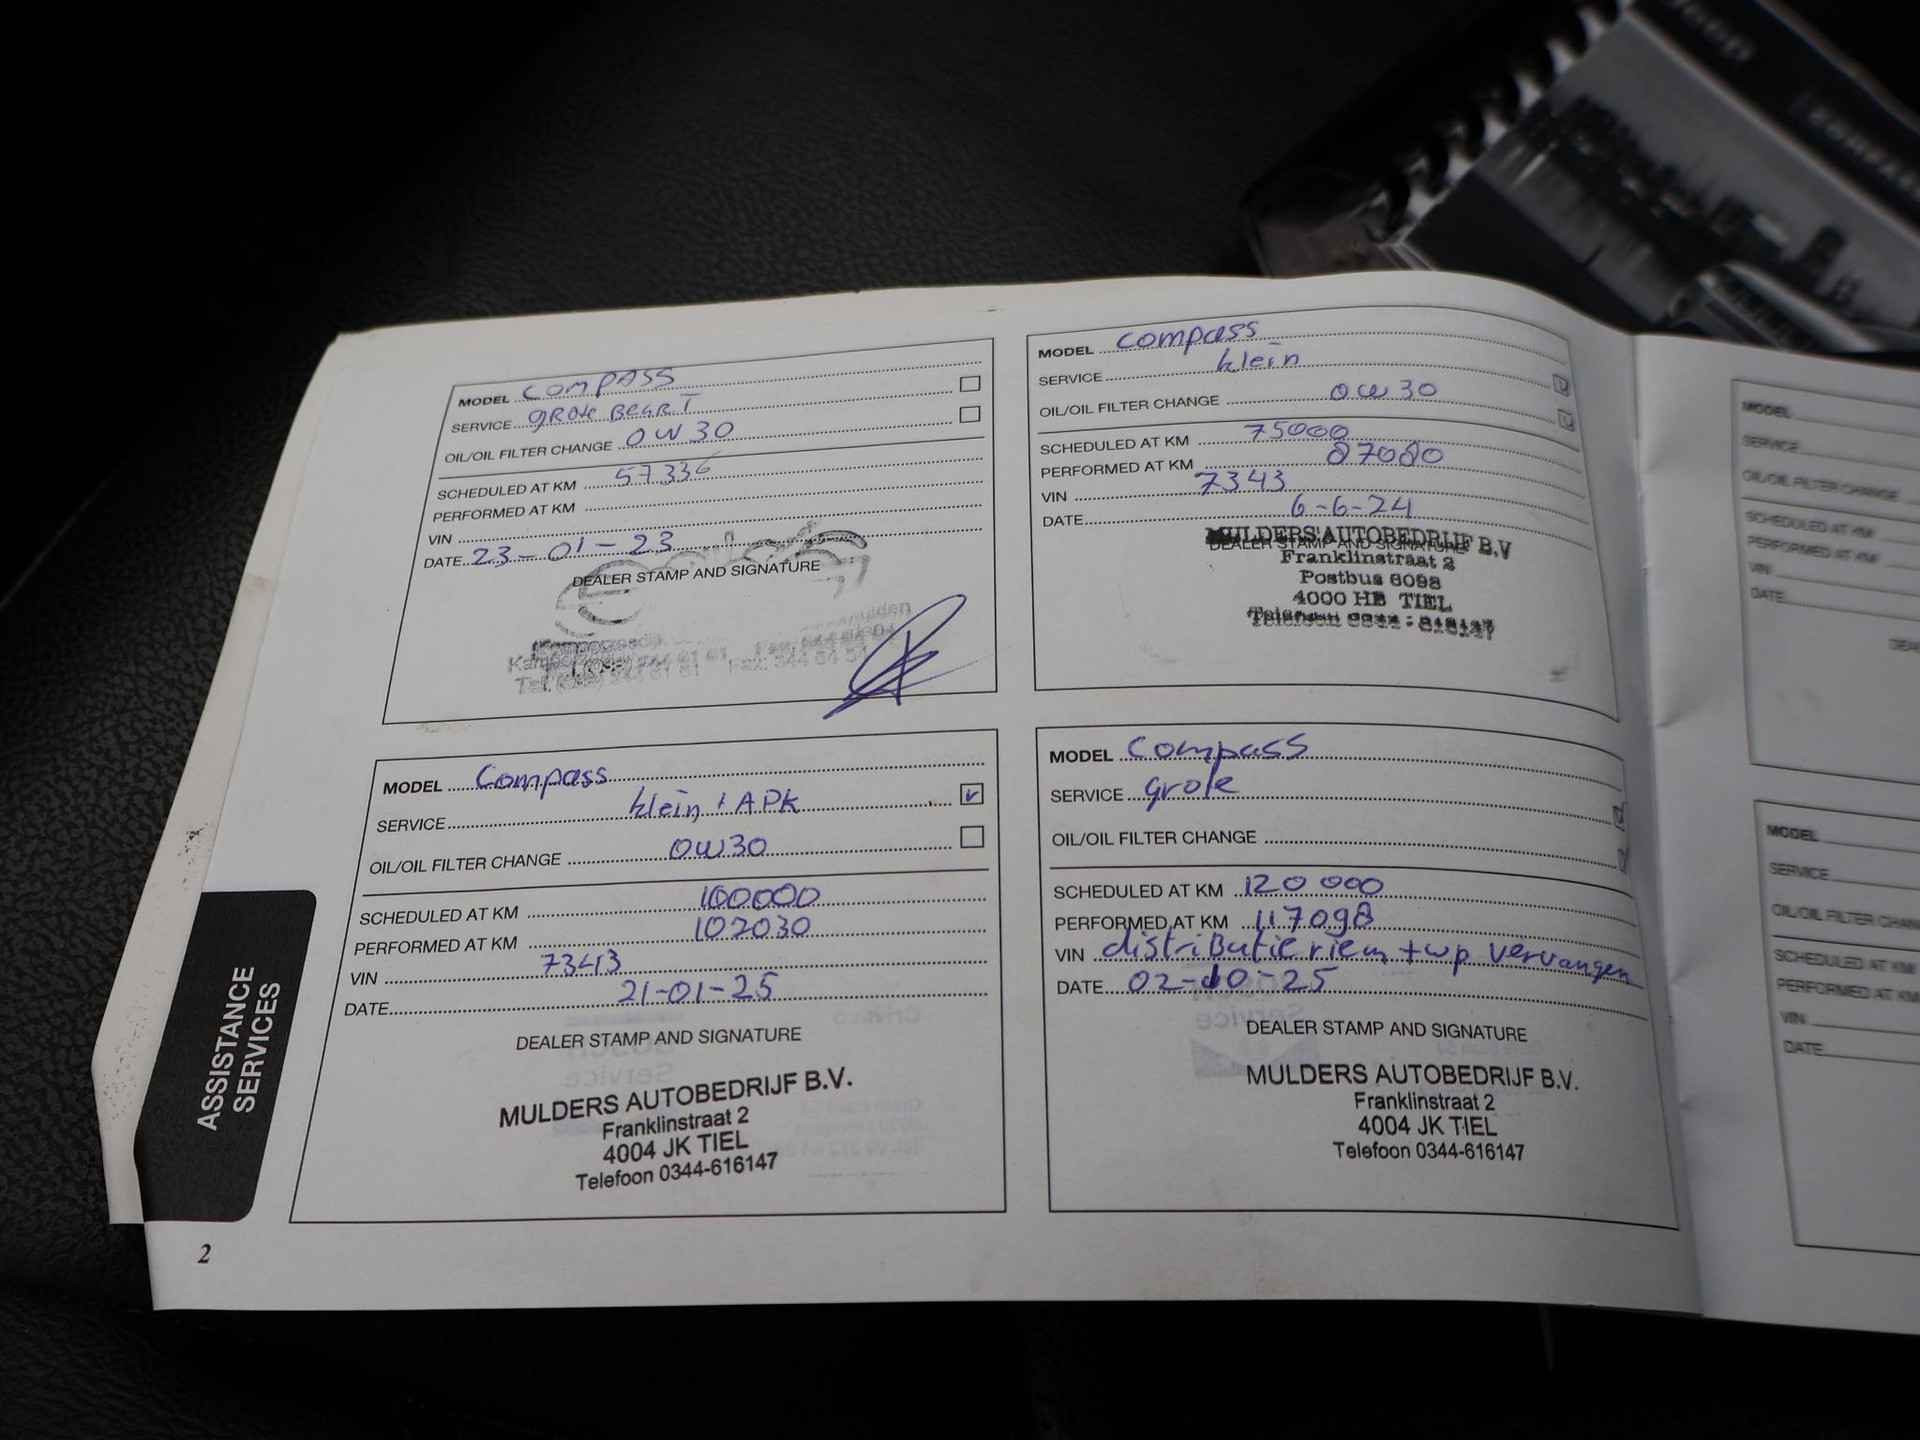 Jeep
COMPASS
MODEL COMPASS
SERVICE GROte BEURT
OIL/OIL FILTER CHANGE 0W30
SCHEDULED AT KM 57336
PERFORMED AT KM
VIN
DATE 23-01-23
DEALER STAMP AND SIGNATURE
MODEL Compass
SERVICE klein
OIL/OIL FILTER CHANGE 0W30
SCHEDULED AT KM 75000
PERFORMED AT KM 87080
VIN 7343
DATE 6-6-24
DEALER STAMP AND SIGNATURE
MULDERS AUTOBEDRIJF B.V
Franklinstraat 2
Postbus 6098
4000 HB TIEL
MODEL Compass
SERVICE klein + APK
OIL/OIL FILTER CHANGE 0W30
SCHEDULED AT KM 100000
PERFORMED AT KM 102030
VIN 7343
DATE 21-01-25
DEALER STAMP AND SIGNATURE
MULDERS AUTOBEDRIJF B.V.
Franklinstraat 2
4004 JK TIEL
Telefoon 0344-616147
MODEL Compass
SERVICE grote
OIL/OIL FILTER CHANGE
SCHEDULED AT KM 120 000
PERFORMED AT KM 117098
VIN distributie riem + wp vervangen
DATE 02-10-25
DEALER STAMP AND SIGNATURE
MULDERS AUTOBEDRIJF B.V.
Franklinstraat 2
4004 JK TIEL
Telefoon 0344-616147
ASSISTANCE
SERVICES
2
MODEL
SERVICE
OIL/OIL FILTER CHANGE
SCHEDULED AT KM
PERFORMED AT KM
VIN
DATE
MODEL
SERVICE
OIL/OIL FILTER CHAN
SCHEDULED AT KM
PERFORMED AT KM
VIN
DATE